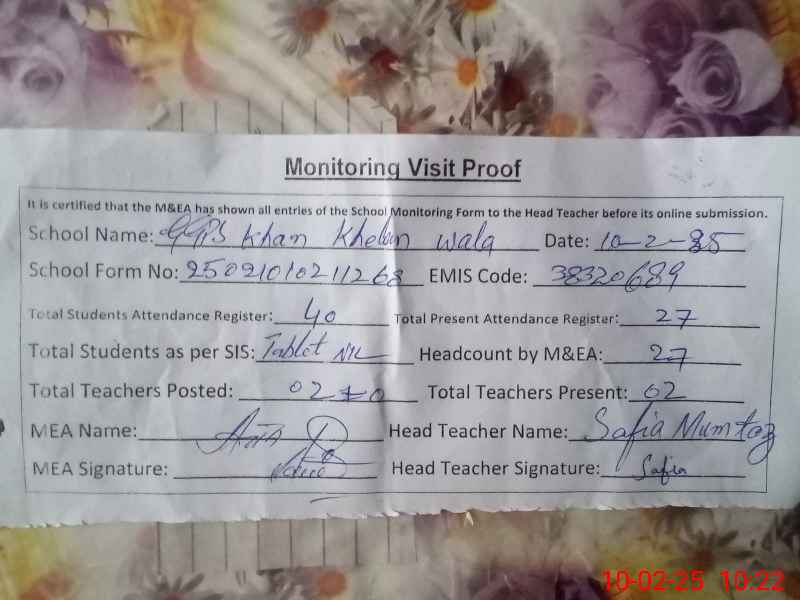 Monitoring Visit Proof
It is certified that the M&EA has shown all entries of the School Monitoring Form to the Head Teacher before its online submission.
School Name: GGPS Khan Khelan wala Date: 10-2-25
School Form No: 25021010211268 EMIS Code: 38320689
Total Students Attendance Register: 40 Total Present Attendance Register: 27
Total Students as per SIS: Tablet NIL Headcount by M&EA: 27
Total Teachers Posted: 02+0 Total Teachers Present: 02
MEA Name: Head Teacher Name: Safia Mumtaz
MEA Signature: Head Teacher Signature: Safia
10-02-25 10:22